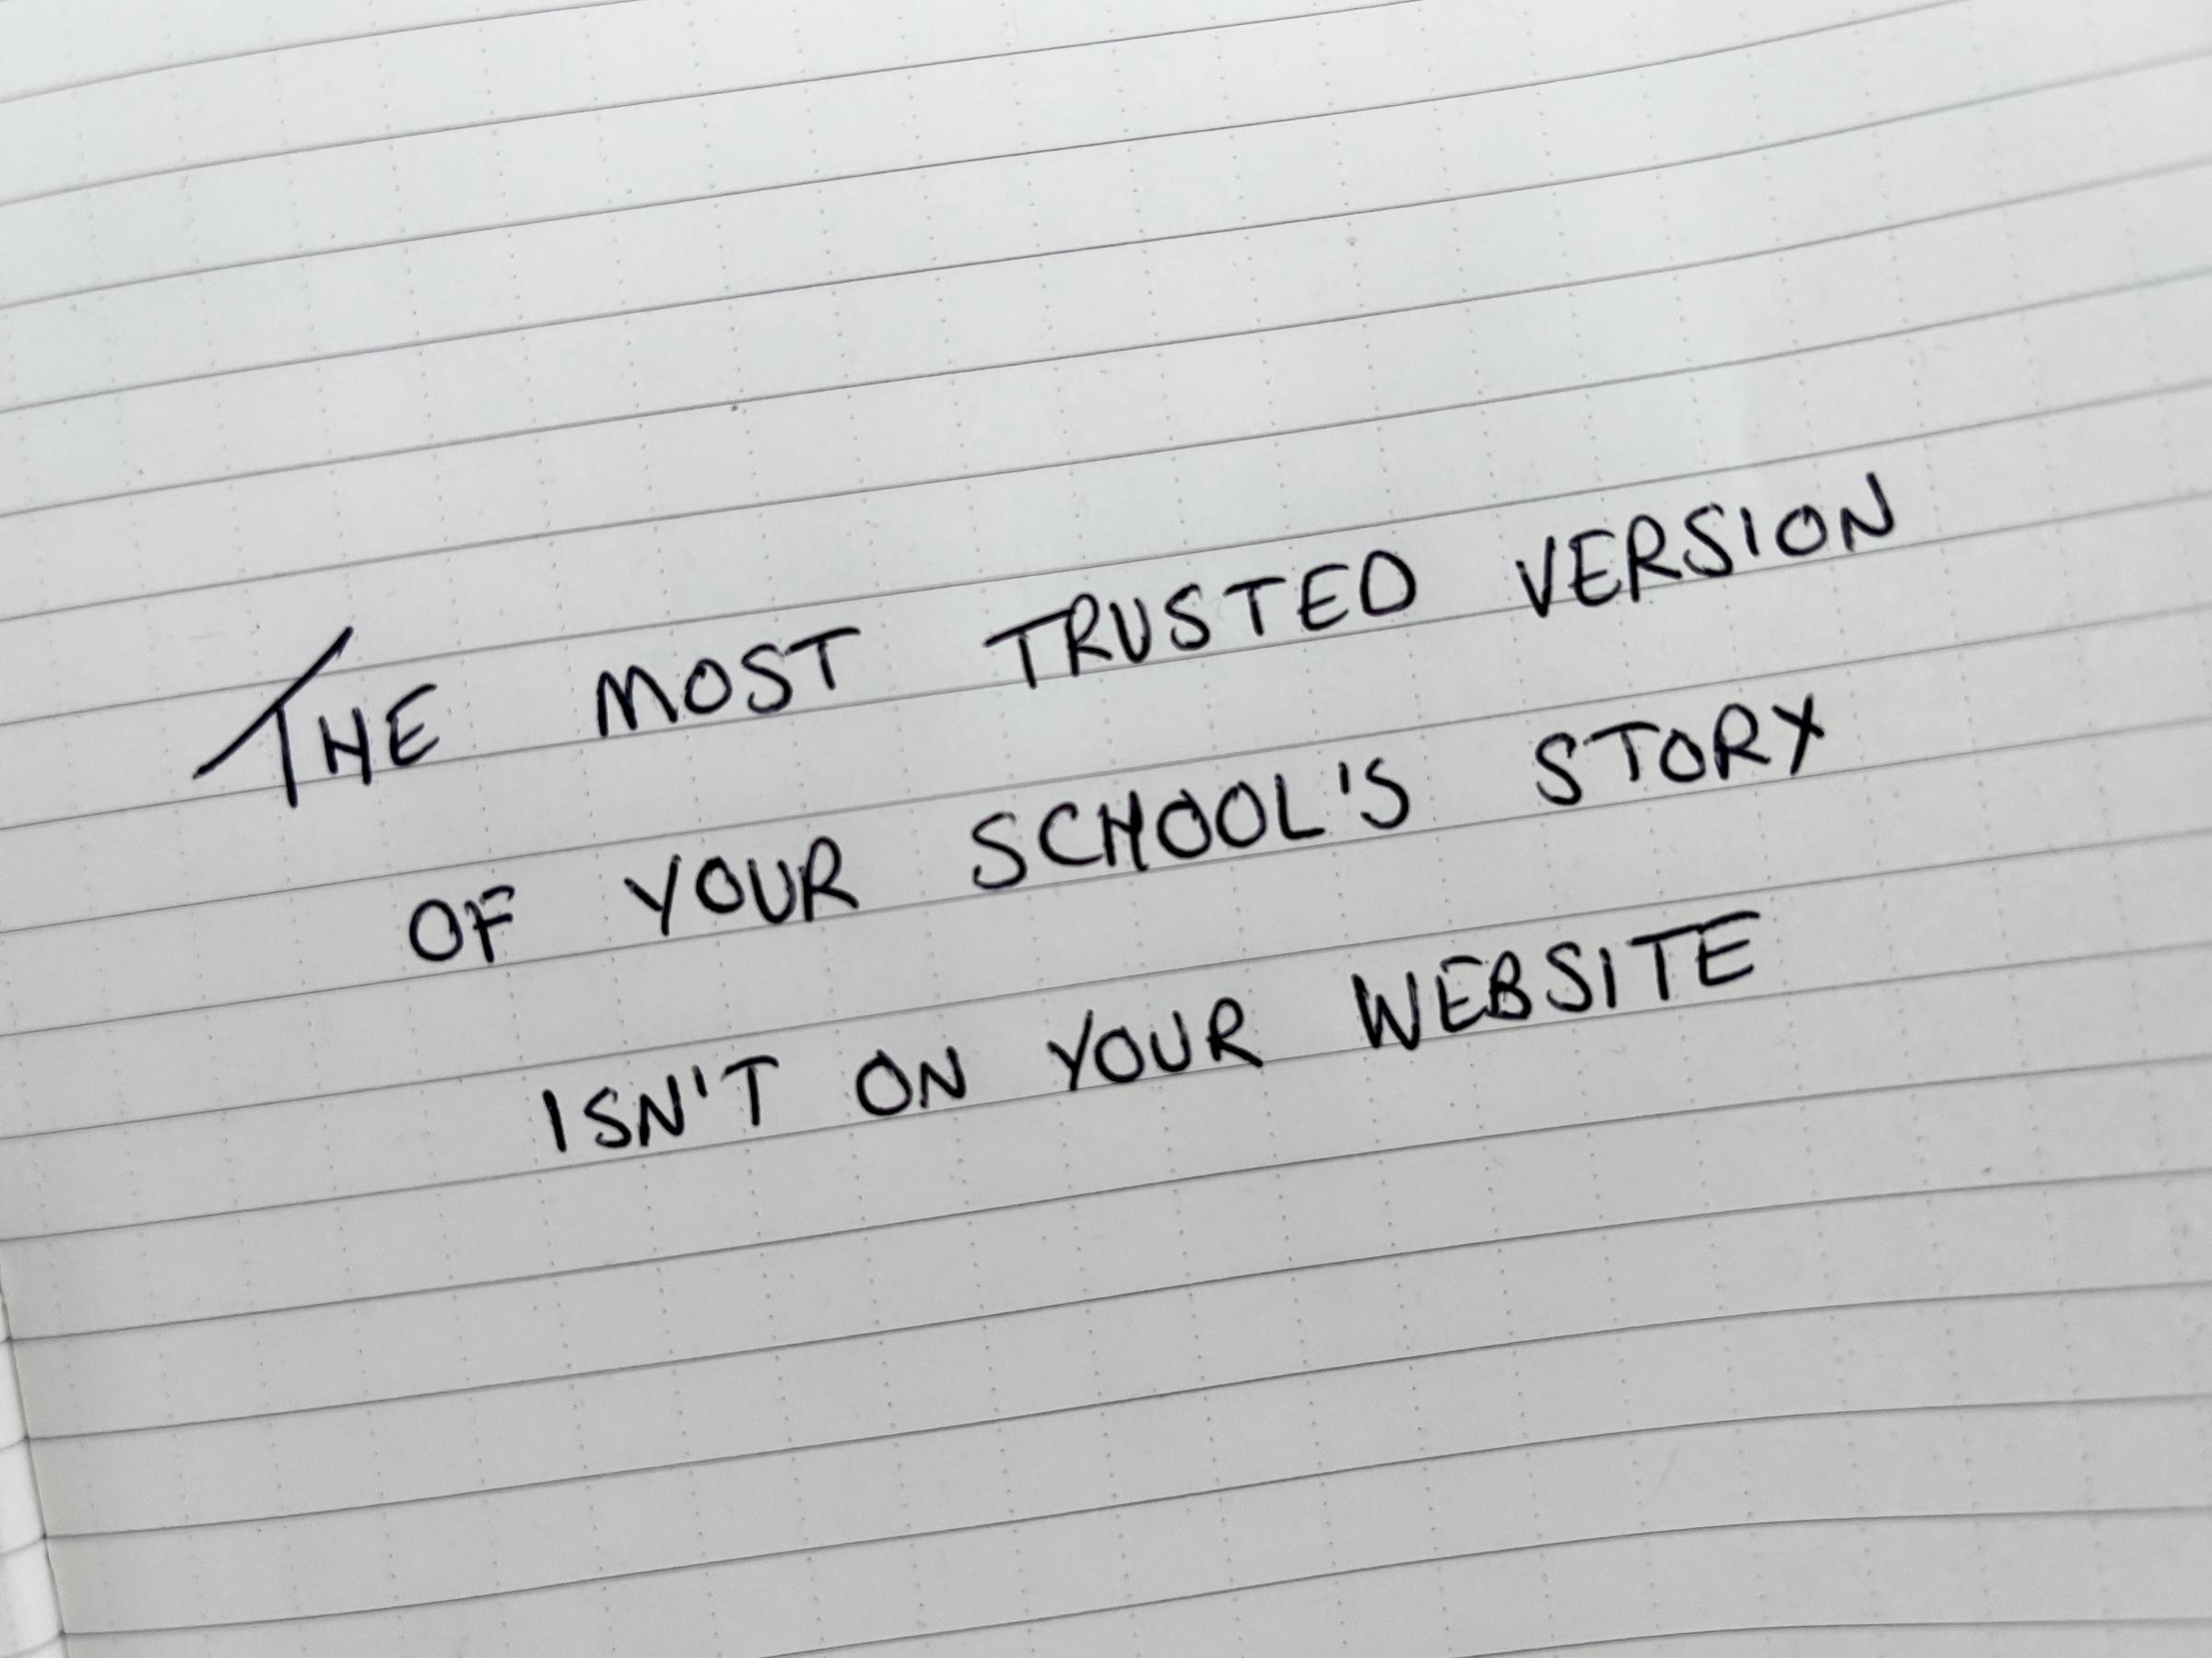 THE MOST TRUSTED VERSION
OF YOUR SCHOOL'S STORY
ISN'T ON YOUR WEBSITE